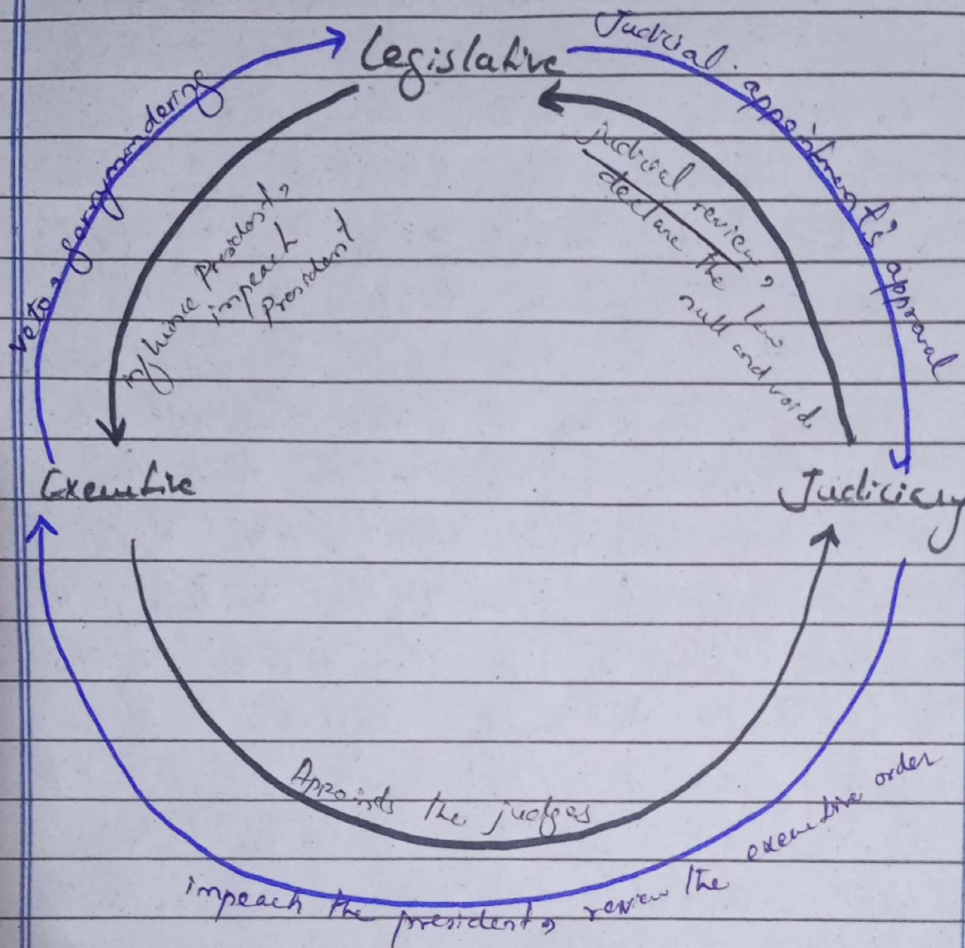 Legislative
Judicial appointment's approval
veto, gerrymandering
influence President,
impeach
President
judicial review,
declare the law
null and void
Executive
Judiciary
Appoints the judges
impeach the president, review the executive order